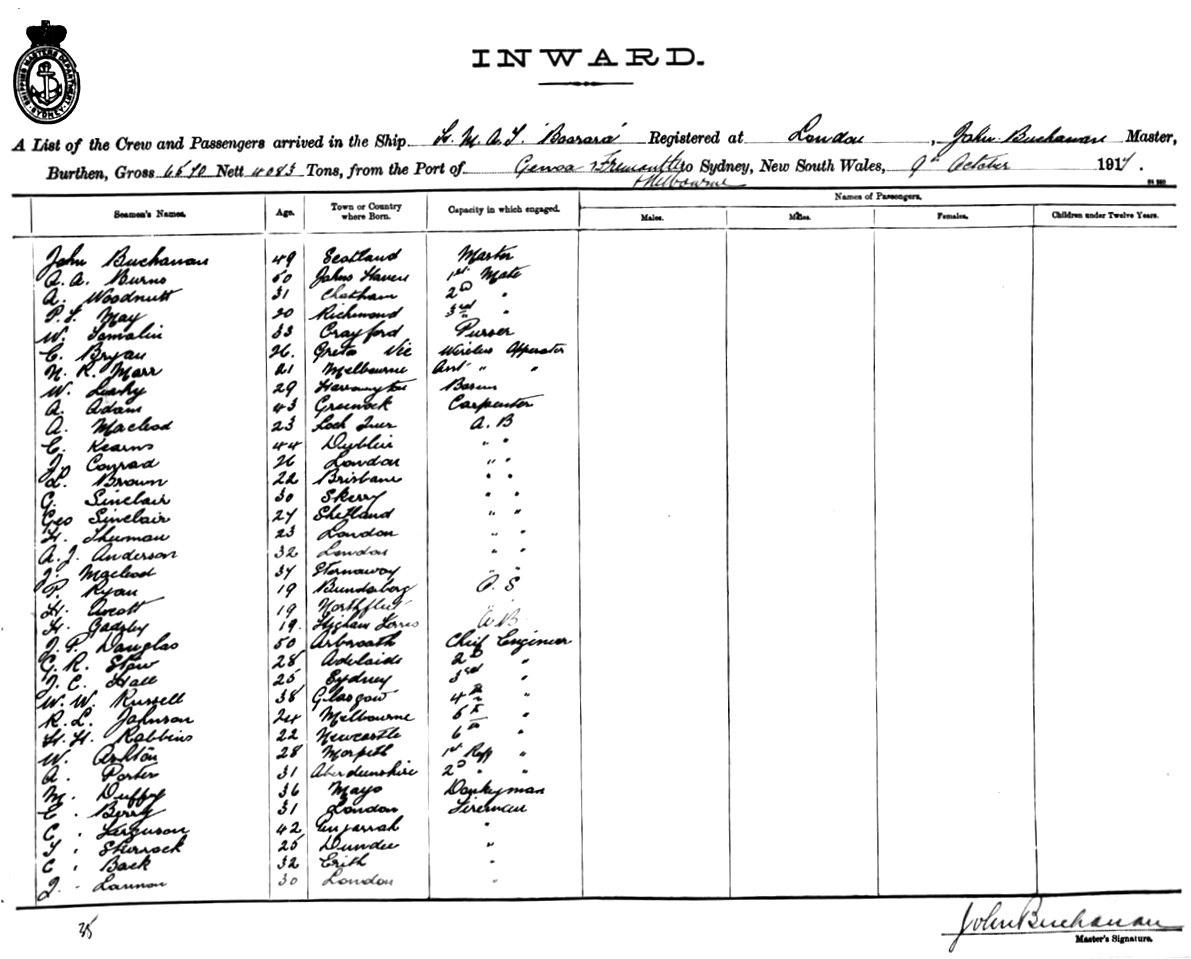 SHIPPING MASTERS DEPARTMENT SYDNEY
INWARD.
A List of the Crew and Passengers arrived in the Ship H. M. A. T. 'Boorara' Registered at London, John Buchanan Master,
Burthen, Gross 6570 Nett 4083 Tons, from the Port of Genoa Fremantle to Sydney, New South Wales, 9th October 1917.
Melbourne
Names of Passengers.
Seamen's Names. Age. Town or Country where Born. Capacity in which engaged. Males. Males. Females. Children under Twelve Years.
John Buchanan 49 Scotland Master
A. A. Burns 50 Johns Haven 1st Mate
A. Woodnutt 31 Chatham 2nd "
P. May 20 Richmond 3rd "
W. Tomalin 33 Crayford Purser
C. Bryan 26. Greta Vic Wireless Opperator
N. R. Marr 21 Melbourne Asst " "
W. Leahy 29 Bosun
A. Adam 43 Greenock Carpenter
A. Macleod 23 Loch A. B
C. Kearns 44 Dublin " "
J. Conrad 26 London " "
Brown 22 Brisbane " "
G. Sinclair 30 Skerry " "
Geo Sinclair 27 Shetland " "
H. 23 London " "
A. J. Anderson 32 London " "
J. Macleod 37 Stornaway " "
P. Ryan 19 Bundaberg O. S
H. 19 Northfleet " "
H. Gadsley 19. Higham A B
J. P. Douglas 50 Arbroath Chief Engineer
G. R. 28 Adelaide 2nd "
J. C. Hall 25 Sydney 3rd "
W. W. Russell 38 Glasgow 4th "
R. L. Johnson 24 Melbourne 5th "
H. H. Robbins 22 Newcastle 6th "
W. Ashton 28 Morpeth 1st Reff "
A. Porter 31 Aberdeenshire 2nd " "
M. Duffy 36 Mayo Donkeyman
C. Berry 31 London Fireman
C. Ferguson 42 "
Sturrock 25 Dundee "
C. Back 32 Erith "
J. Lannon 30 London "
35
John Buchanan
Master's Signature.